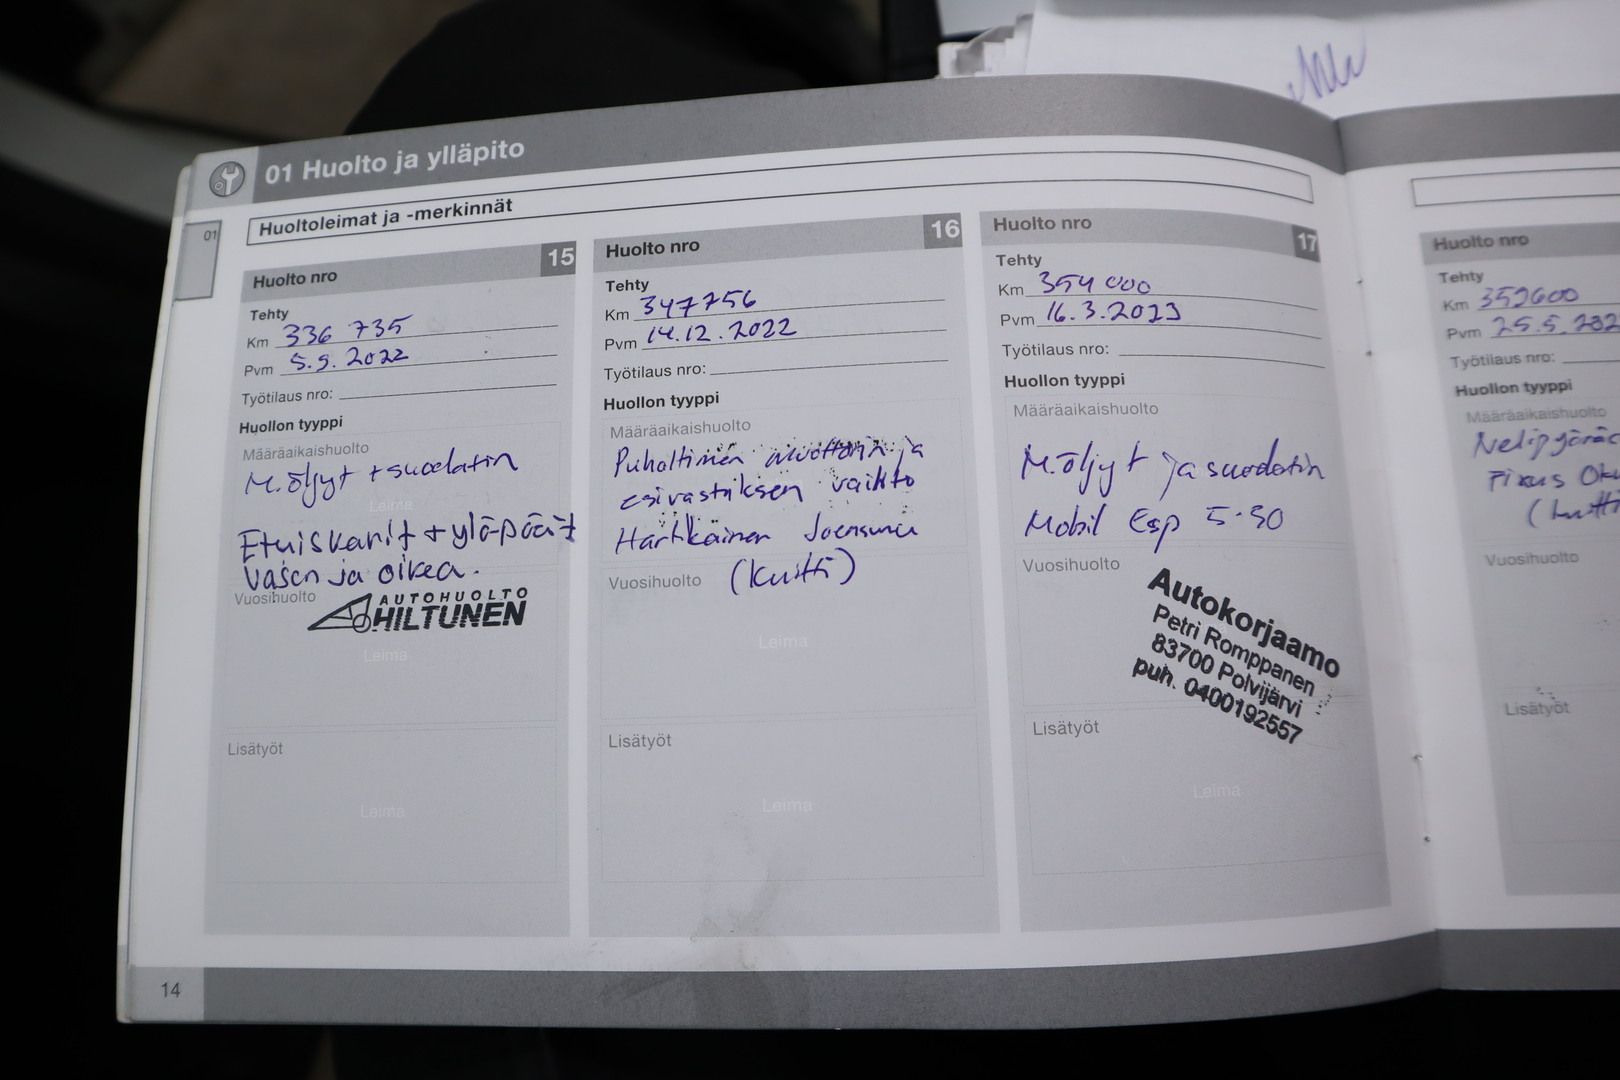 01 Huolto ja ylläpito
Huoltoleimat ja -merkinnät
01
Huolto nro 15
Tehty
Km 336 735
Pvm 5.9.2022
Työtilaus nro:
Huollon tyyppi
Määräaikaishuolto
M.öljyt + suodatin
Leima
Etuiskarit + yläpäät
Vasen ja oikea.
Vuosihuolto
AUTOHUOLTO
HILTUNEN
Leima
Lisätyöt
Leima
Huolto nro 16
Tehty
Km 347756
Pvm 14.12.2022
Työtilaus nro:
Huollon tyyppi
Määräaikaishuolto
Puhaltimen moottorin ja
esivastuksen vaihto
Hartikainen Joensuu
Vuosihuolto (kuitti)
Leima
Lisätyöt
Leima
Huolto nro 17
Tehty
Km 354 000
Pvm 16.3.2023
Työtilaus nro:
Huollon tyyppi
Määräaikaishuolto
M.öljyt ja suodatin
Mobil Esp 5-30
Vuosihuolto
Autokorjaamo
Petri Romppanen
83700 Polvijärvi
puh. 0400192557
Lisätyöt
Leima
Huolto nro
Tehty
Km 359600
Pvm 25.5.202
Työtilaus nro:
Huollon tyyppi
Määräaikaishuolto
Nelipyörä
Fixus
Vuosihuolto
Lisätyöt
14